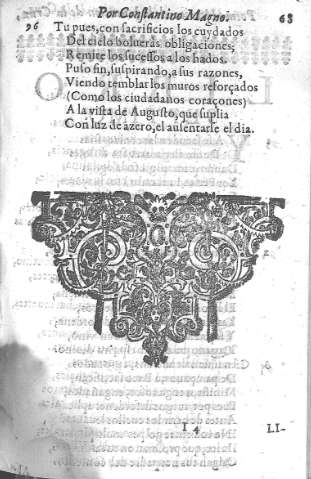 Por Constantino Magno. 68
96 Tu pues, con sacrificios los cuydados
Del cielo bolueràs obligaciones,
Remite los sucessos a los hados.
Puso fin, suspirando, a sus razones,
Viendo temblar los muros reforçados
(Como los ciudadanos coraçones)
A la vista de Augusto, que suplia
Con luz de azero, el ausentarse el dia.
I 4 LI-